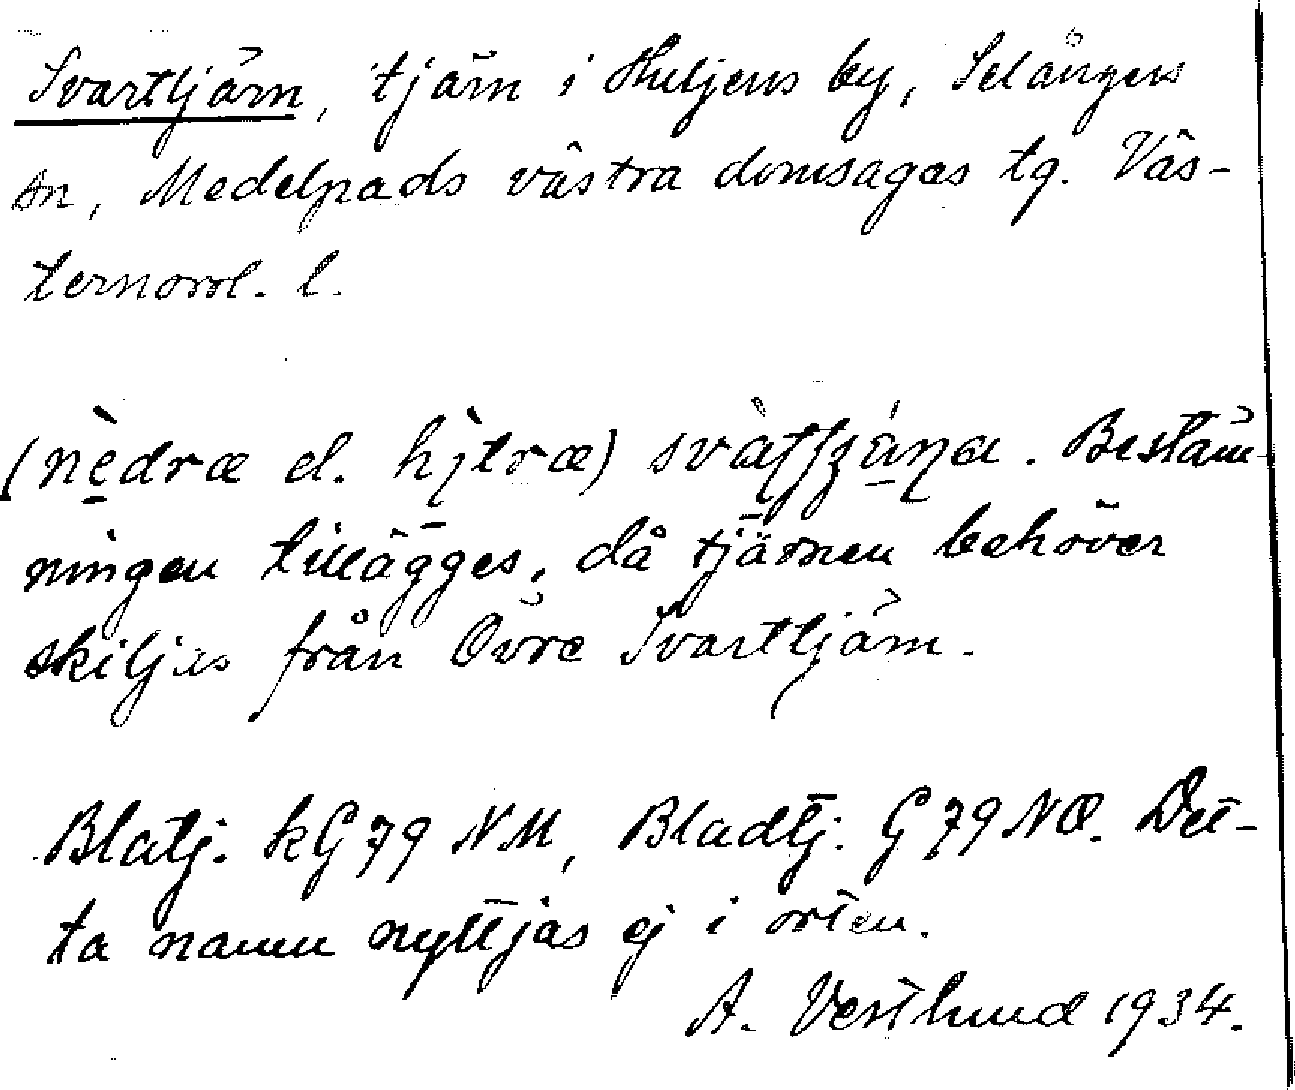 Svarttjärn, tjärn i Huljens by, Selångers
sn, Medelpads västra domsagas tg. Väs-
ternorrl. l.
(nèdræ el. hìtræ) svàttjäɳa. Bestäm-
ningen tillägges, då tjärnen behöver
skiljas från Övre Svarttjärn.
Blatj. kG79 NM, Bladtj. G79NO. Det-
ta namn nyttjas ej i orten.
A. Vestlund 1934.